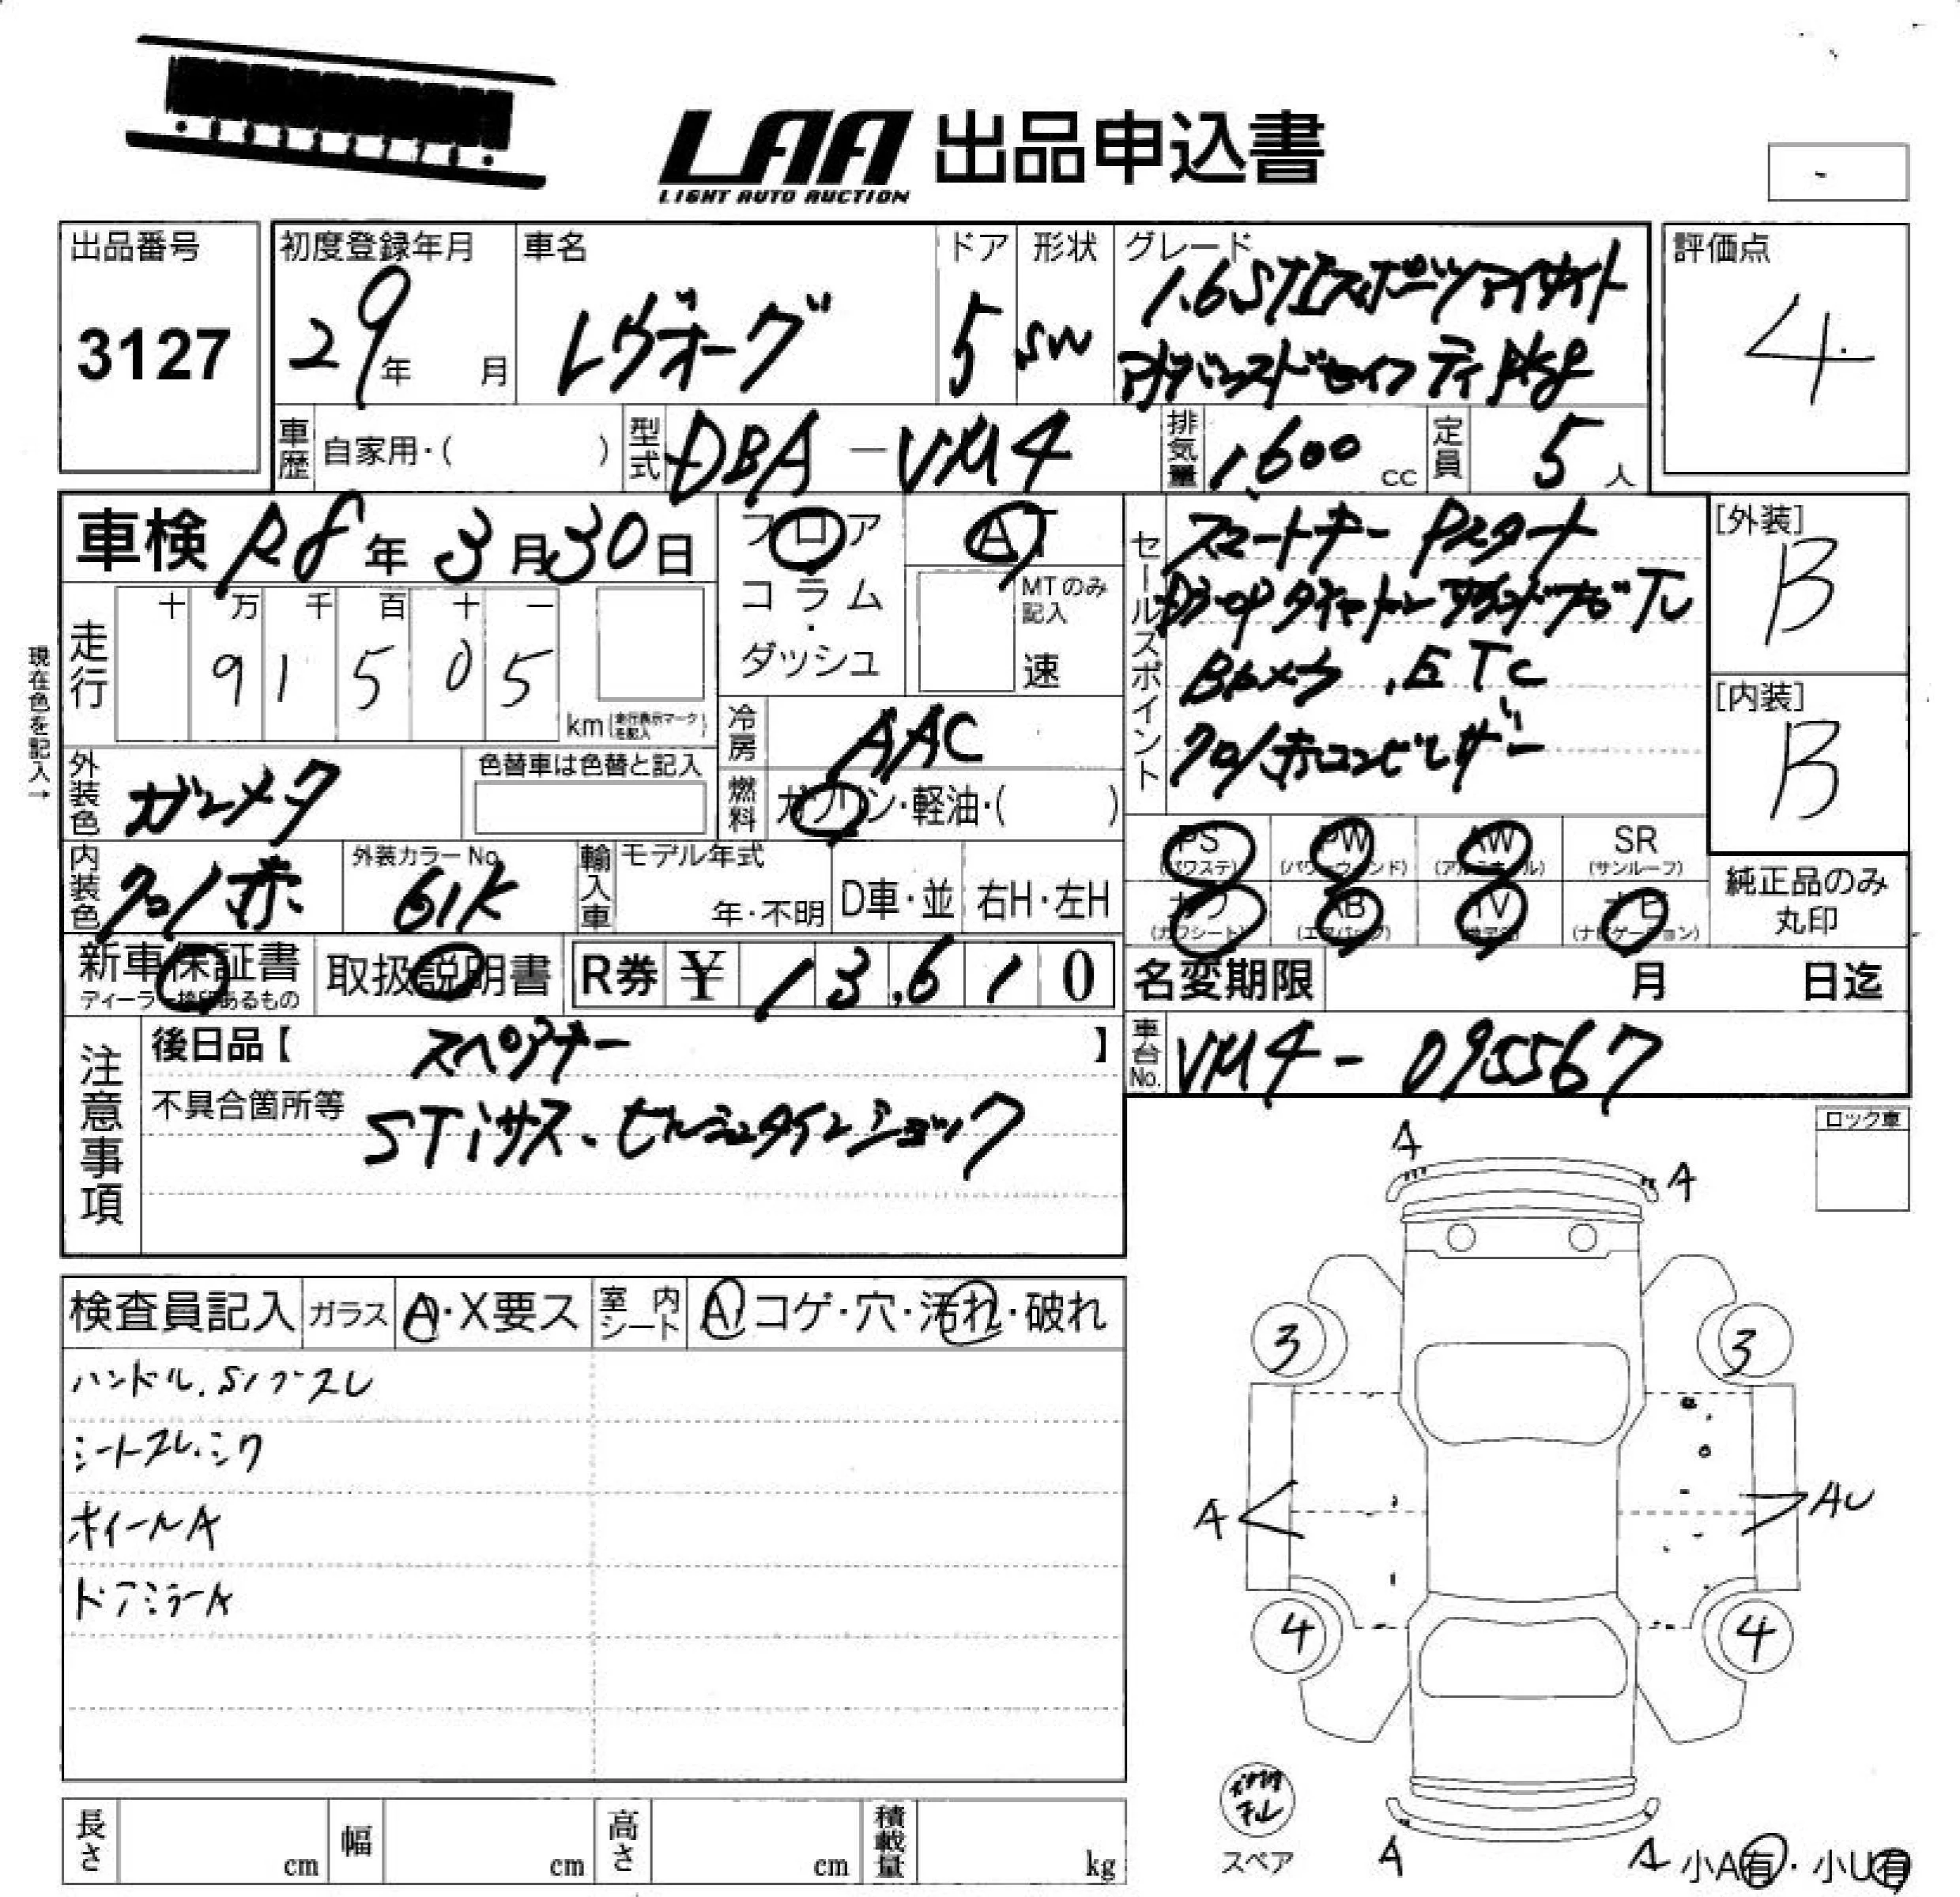 LAA 出品申込書
LIGHT AUTO AUCTION
-
出品番号
3127
初度登録年月
29年 月
車名
レヴォーグ
ドア
5
形状
SW
グレード
1.6STIスポーツアイサイト
アドバンスドセイフティPKg
評価点
4
車歴 自家用・( )
型式 DBA-VM4
排気量 1,600 cc
定員 5人
車検 R8年3月30日
フロア
コラム
・
ダッシュ
AT
MTのみ記入
速
走行
十 万 千 百 十 一
9 1 5 0 5
km(走行表示マークを記入)
現在色を記入→
冷房 AAC
外装色 ガンメタ
色替車は色替と記入
燃料 ガソリン・軽油・( )
内装色 クロ/赤
外装カラーNo.
61K
輸入車
モデル年式
年・不明
D車・並
右H・左H
新車保証書
取扱説明書
R券 ¥ 13,610
セールスポイント
スマートキー Pスタート
Bカメラ,ETC
クロ/赤コンビレザー
[外装]
B
[内装]
B
PS (パワステ)
PW (パワーウィンド)
AW (アルミホイル)
SR (サンルーフ)
カワ (カワシート)
AB (エアバック)
TV
ナビ (ナビゲーション)
純正品のみ
丸印
名変期限 月 日迄
車台No. VM4-095567
注意事項
後日品【 スペアキー 】
不具合箇所等
STiサス、ビルシュタインショック
ロック車
検査員記入
ガラス A・X要ス
室内シート A コゲ・穴・汚れ・破れ
ハンドル.S/ブスレ
シートスレ.シワ
ホイールA
ドアミラーA
A
A
3
3
A
AU
4
4
スペア
A
A
小A有・小U有
長さ cm
幅 cm
高さ cm
積載量 kg